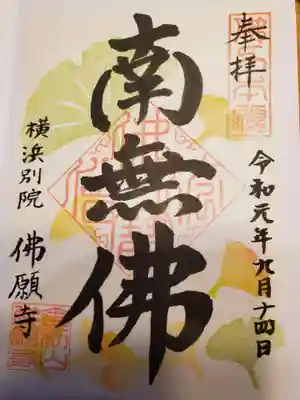 奉拝
令和元年九月十四日
南無佛
横浜別院
佛願寺